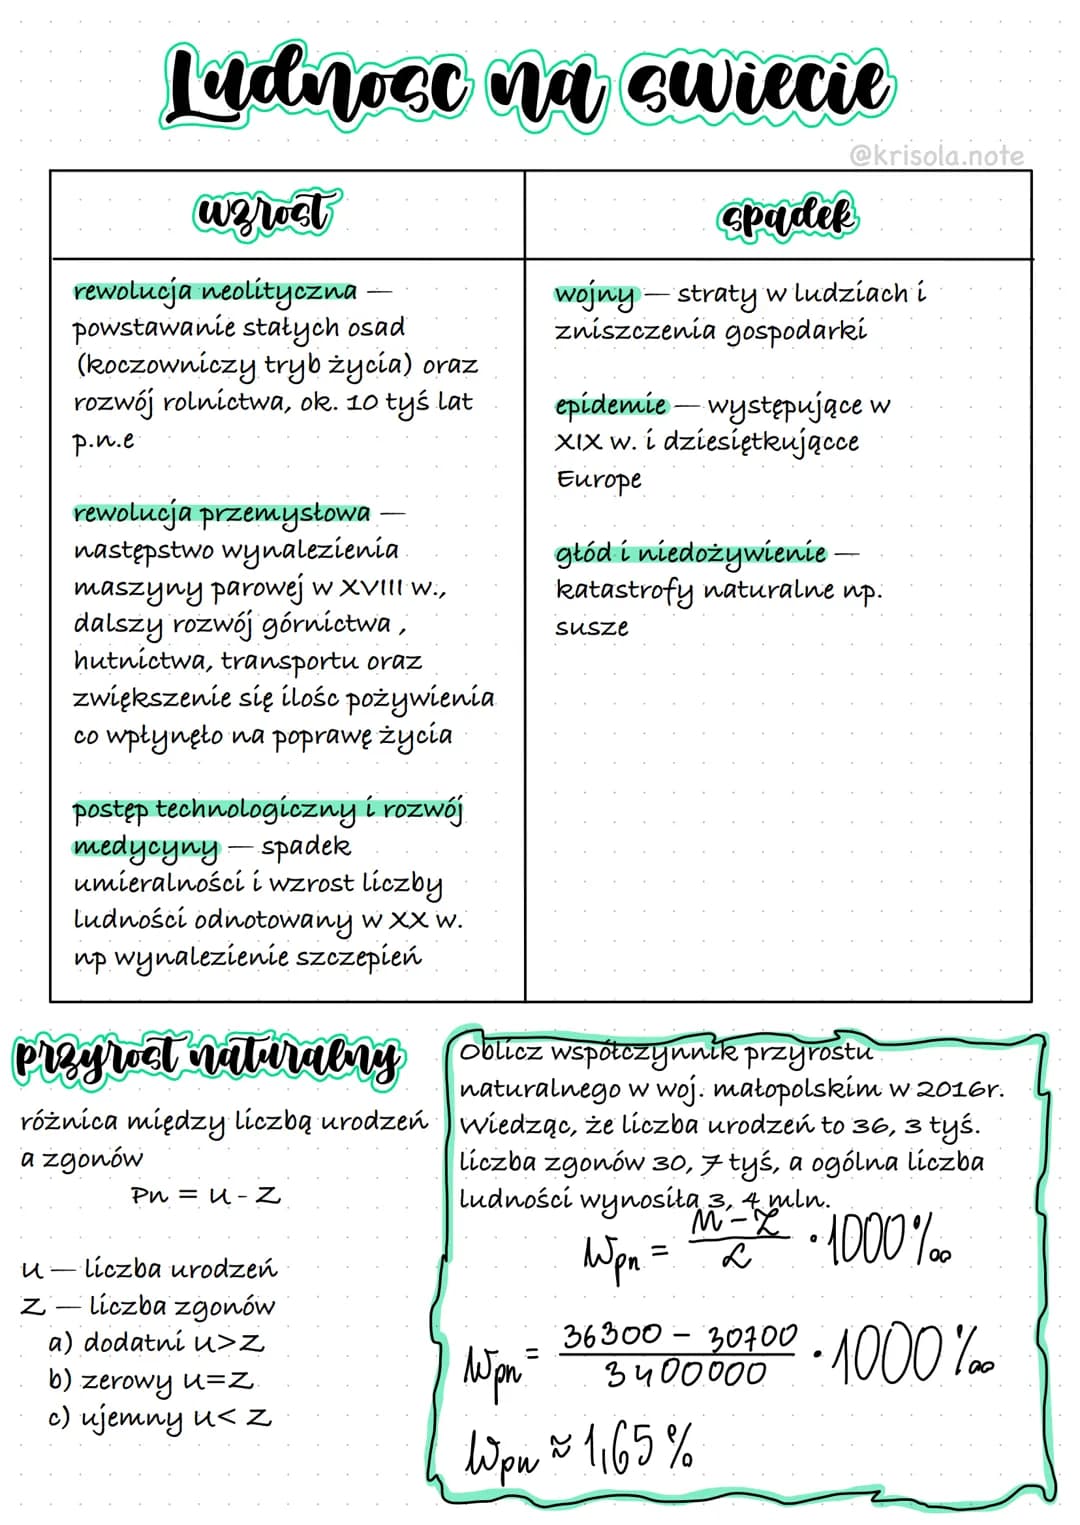 Ludnosc na swiecie
@krisola.note
wzrost
rewolucja neolityczna —
powstawanie stałych osad
(koczowniczy tryb życia) oraz
rozwój rolnictwa, ok. 10 tyś lat
p.n.e
rewolucja przemysłowa —
następstwo wynalezienia
maszyny parowej w XVIII w.,
dalszy rozwój górnictwa ,
hutnictwa, transportu oraz
zwiększenie się ilośc pożywienia
co wpłynęło na poprawę życia
postęp technologiczny i rozwój
medycyny — spadek
umieralności i wzrost liczby
ludności odnotowany w XX w.
np wynalezienie szczepień
spadek
wojny — straty w ludziach i
zniszczenia gospodarki
epidemie — występujące w
XIX w. i dziesiętkującce
Europe
głód i niedożywienie —
katastrofy naturalne np.
susze
przyrost naturalny
różnica między liczbą urodzeń
a zgonów
Pn = U - Z
U — liczba urodzeń
Z — liczba zgonów
a) dodatni U>Z
b) zerowy U=Z
c) ujemny U< Z
Oblicz współczynnik przyrostu
naturalnego w woj. małopolskim w 2016r.
Wiedząc, że liczba urodzeń to 36, 3 tyś.
liczba zgonów 30, 7 tyś, a ogólna liczba
ludności wynosiła 3, 4 mln.
Wpn = U-Z / L · 1000‰
Wpn = 36300 - 30700 / 3400000 · 1000‰
Wpn ≈ 1,65 %